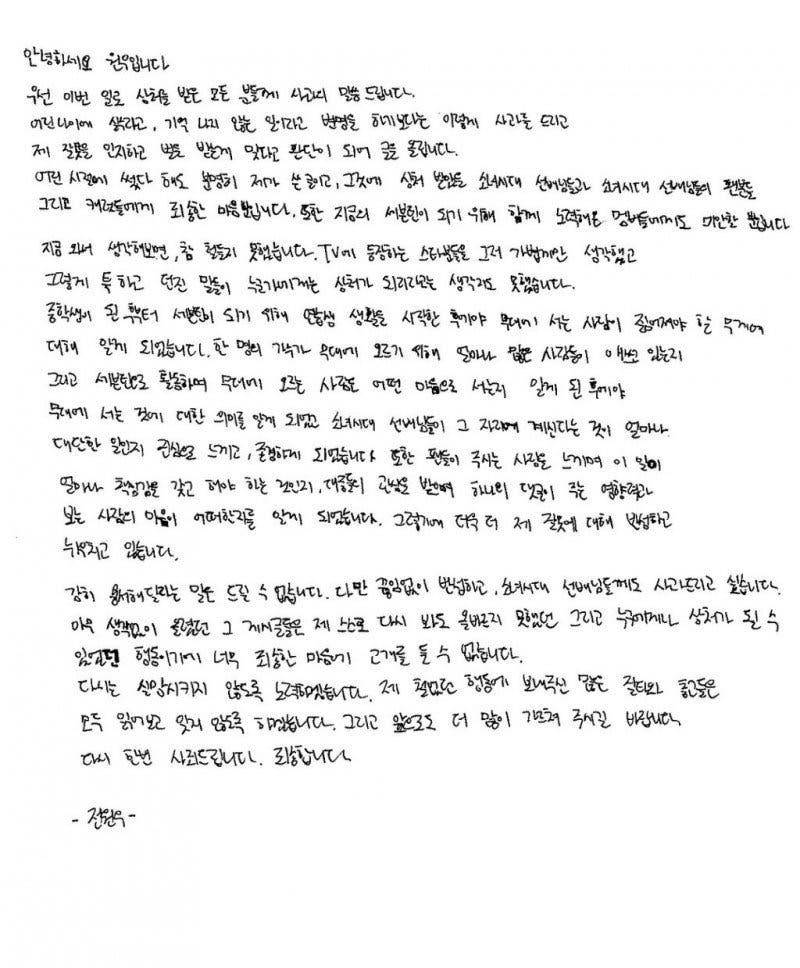 안녕하세요 원우입니다
우선 이번 일로 상처를 받은 모든 분들께 사과의 말씀 드립니다.
어린나이에 썼라고, 기억 나지 않는 일이라고 변명을 하기보다는 이렇게 사과를 드리고
제 잘못을 인지하고 벌을 받는게 맞다고 판단이 되어 글을 올립니다.
어린 시절에 썼다 해도 분명히 제가 쓴 글이고, 그것에 상처 받았을 소녀시대 선배님들과 소녀시대 선배님들의 팬분들
그리고 캐럿들에게 죄송한 마음뿐입니다. 또한 지금의 세븐틴이 되기 위해 함께 노력해온 멤버들에게도 미안할 뿐입니다
지금 와서 생각해보면, 참 철들지 못했습니다. TV에 등장하는 스타분들을 그저 가볍게만 생각했고
그렇게 툭 하고 던진 말들이 누군가에게는 상처가 되리라고는 생각지도 못했습니다.
중학생이 된 후부터 세븐틴이 되기 위해 연습생 생활을 시작한 후에야 무대에 서는 사람이 짊어져야 할 무게에
대해 알게 되었습니다. 한 명의 가수가 무대에 오르기 위해 얼마나 많은 사람들이 애쓰고 있는지
그리고 세븐틴으로 활동하며 무대에 오르는 사람은 어떤 마음으로 서는지 알게 된 후에야
무대에 서는 것에 대한 의미를 알게 되었고 소녀시대 선배님들이 그 자리에 계신다는 것이 얼마나
대단한 일인지 진심으로 느끼고, 존경하게 되었습니다 또한 팬들이 주시는 사랑을 느끼며 이 일이
얼마나 책임감을 갖고 해야 하는 것인지, 대중들의 관심을 받으며 하나의 댓글이 주는 영향력과
보는 사람의 마음이 어떠한지를 알게 되었습니다. 그렇기에 더욱 더 제 잘못에 대해 반성하고
뉘우치고 있습니다.
감히 용서해달라는 말은 드릴 수 없습니다. 다만 끊임없이 반성하고, 소녀시대 선배님들께도 사과드리고 싶습니다.
아무 생각없이 올렸던 그 게시글들은 제 스스로 다시 봐도 올바르지 못했던 그리고 누구에게나 상처가 될 수
있었던 행동이기에 너무 죄송한 마음에 고개를 들 수 없습니다.
다시는 실망시키지 않도록 노력하겠습니다. 제 철없던 행동에 보내주신 많은 질타와 충고들은
모두 읽어보고 잊지 않도록 하겠습니다. 그리고 앞으로도 더 많이 가르쳐 주시길 바랍니다
다시 한번 사죄드립니다. 죄송합니다.
- 전원우 -